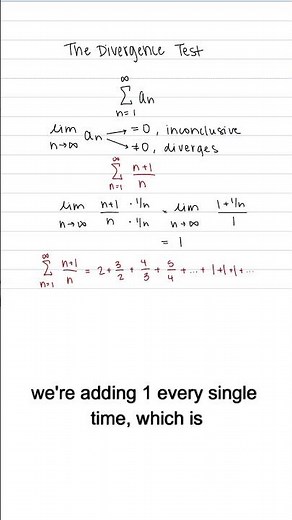 The Divergence Test
∞
Σ an
n=1
lim an → =0, inconclusive
n→∞ → ≠0, diverges
∞
Σ n+1/n
n=1
lim n+1/n · 1/n / · 1/n = lim 1+1/n / 1
n→∞ n→∞
= 1
∞
Σ n+1/n = 2+3/2+4/3+5/4+...+1+1+1+...
n=1
we're adding 1 every single
time, which is